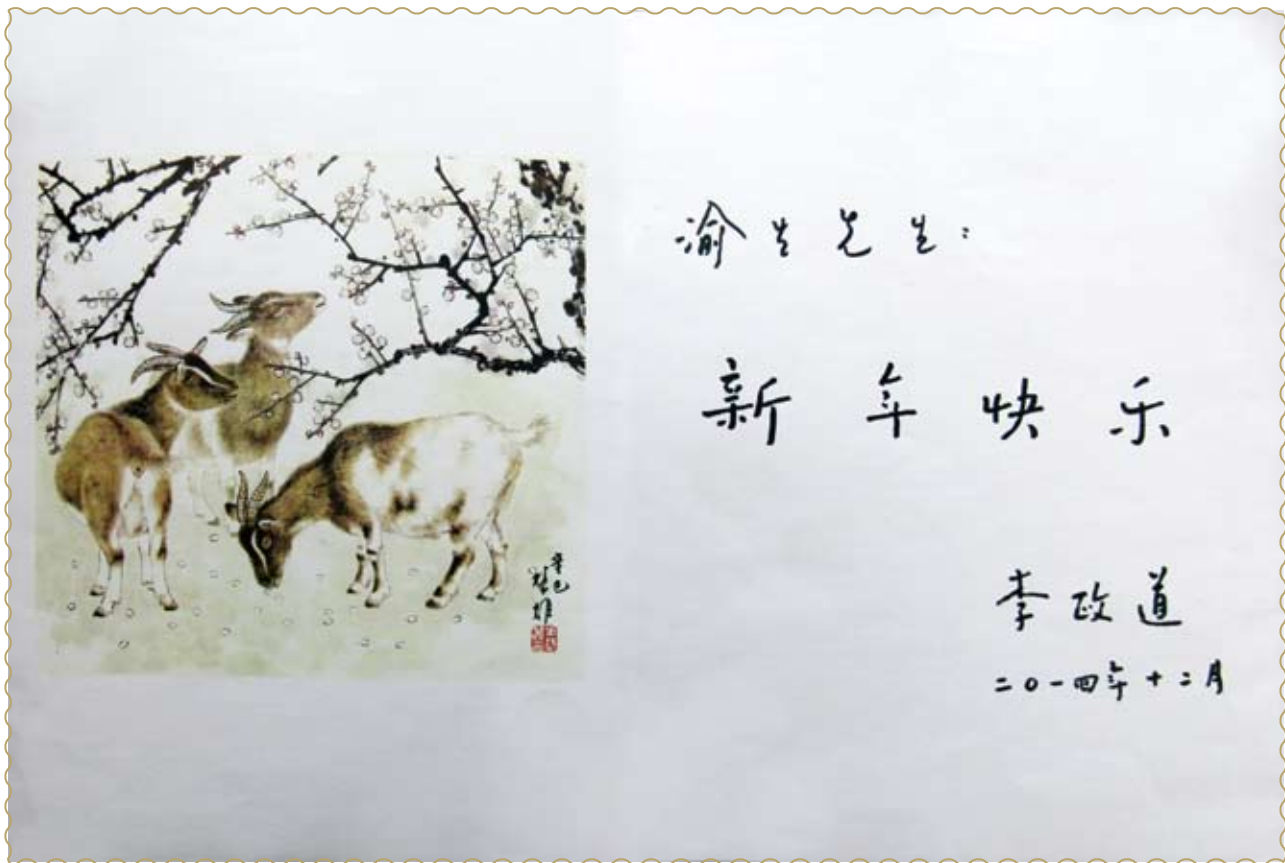 渝生先生：
新年快乐
李政道
二〇一四年十二月
辛巳